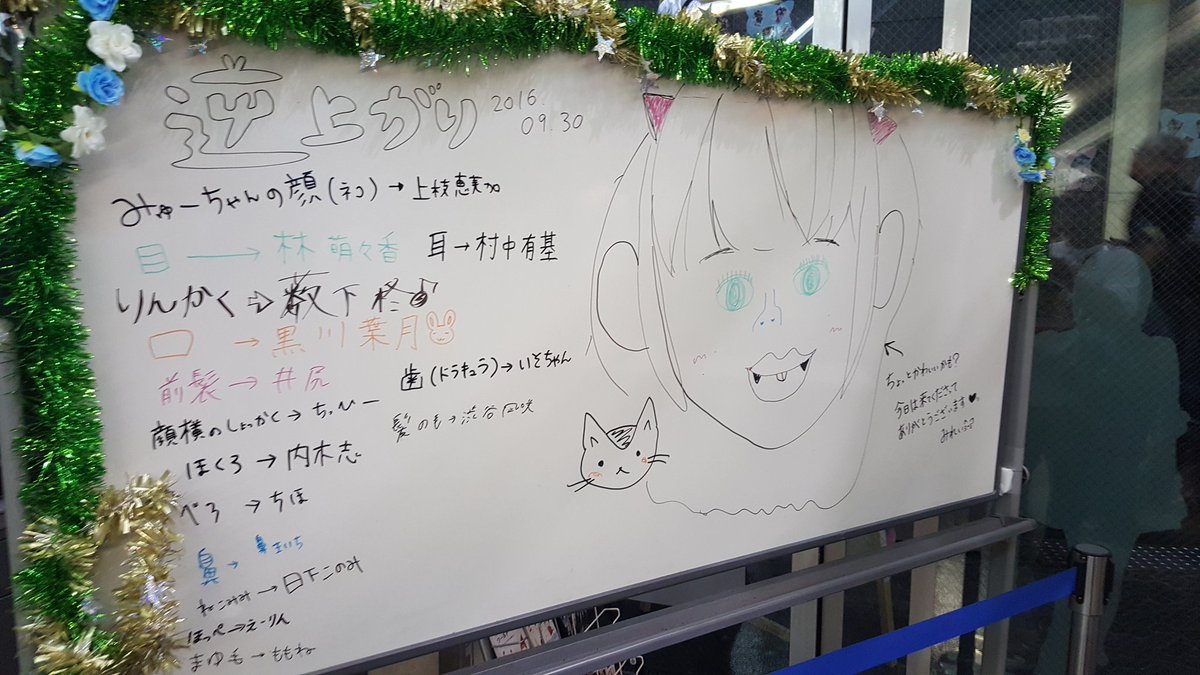 逆上がり 2016.
09.30
みゅーちゃんの顔(ネコ)→上枝恵美加
目→林萌々香 耳→村中有基
りんかく⇨薮下柊
口→黒川葉月
前髪→井尻
歯(ドラキュラ)→いそちゃん
顔横のしょっかく→ちっひー
髪のも→渋谷凪咲
ほくろ→内木志
べろ→ちほ
鼻→
ねこみみ→日下このみ
ほっぺ→えーりん
まゆも→ももね
ちょっとかわいいかも?
今日は来てくださって
ありがとうございます♥。